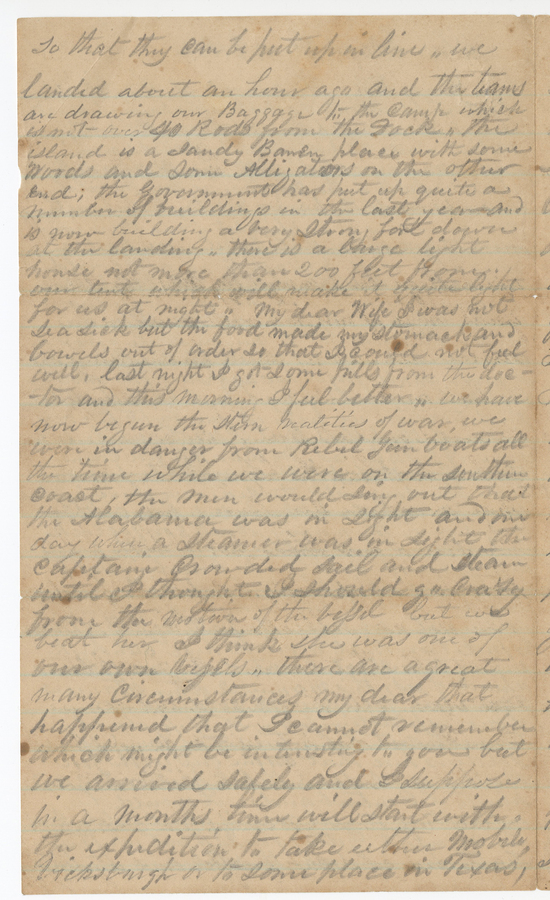 So that they can be put up in line,, we
landed about an hour ago and the teams
are drawing our Baggage to the Camp which
is not over 40 Rods from the Dock,, the
island is a Sandy Baren place with some
Woods and Some Alligators on the other
end; the Government has put up quite a
number of buildings in the last year and
is now building a very strong fort down
at the landing,, there is a large light
house not more than 200 feet from
our tent which will make it quite light
for us at night,, My dear Wife I was not
Sea sick but the food made my stomack and
bowels out of order so that I could not feel
well, last night I got some pills from the doc-
tor and this morning I feel better,, we have
now begun the stern realities of war, we
were in danger from Rebel Gun boats all
the time while we were on the southern
coast, the men would sing out that
the Alabama was in sight and one
day when a steamer was in sight the
Captain Crowded sail and steam
until I thought I should go Crazy
from the motion of the vessel but we
beat her I think she was one of
our own vessels,, there are a great
many Circumstances my dear that
happened that I cannot remember
which might be interesting to you but
we arrived safely and I suppose
in a months time will start with
the expedition to take either Mobile,
Vicksburgh or to some place in Texas,